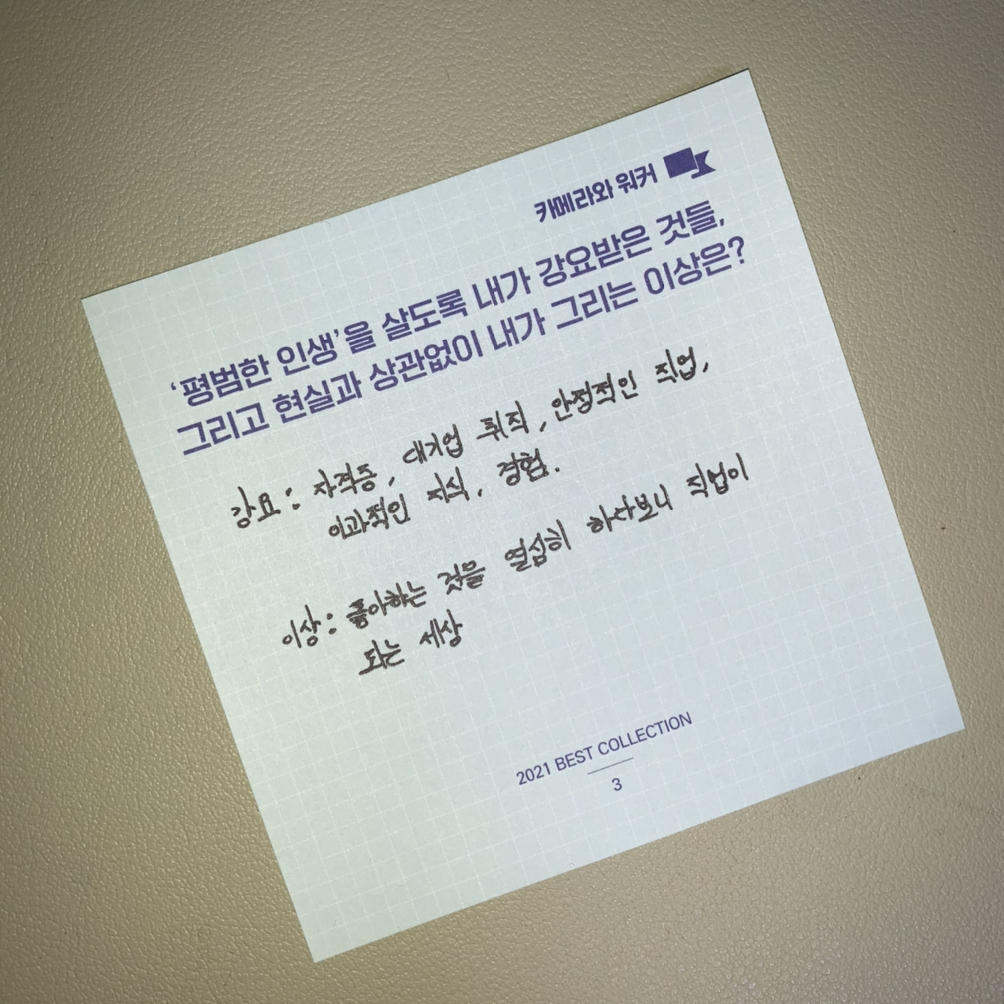 카메라와 워커
‘평범한 인생’을 살도록 내가 강요받은 것들,
그리고 현실과 상관없이 내가 그리는 이상은?
강요 : 자격증, 대기업 취직, 안정적인 직업,
이과적인 지식, 경험.
이상 : 좋아하는 것을 열심히 하다보니 직업이
되는 세상
2021 BEST COLLECTION
3